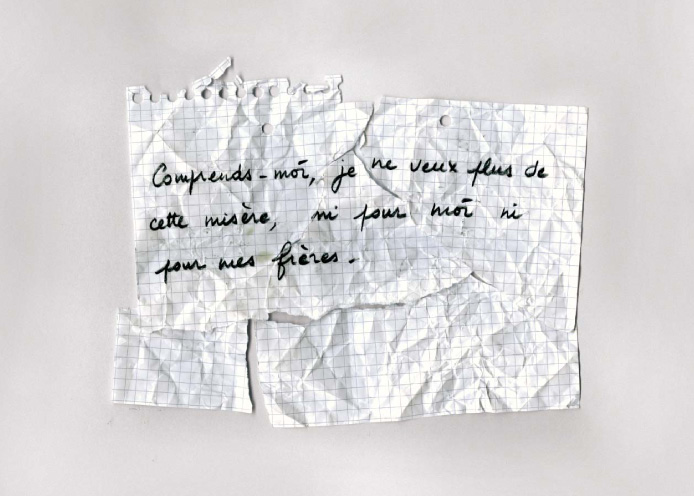 Comprends-moi, je ne veux plus de
cette misère, ni pour moi ni
pour mes frères.